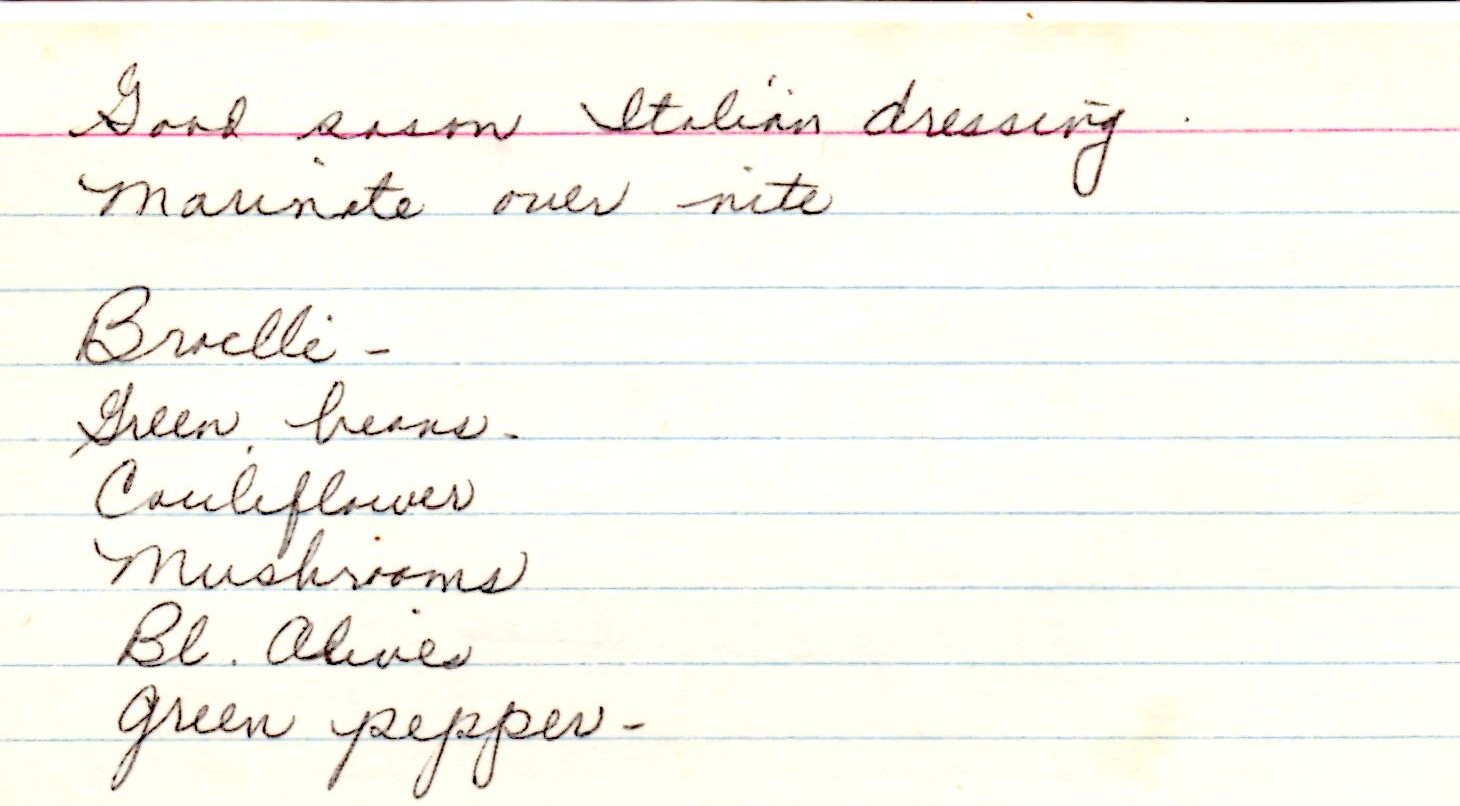 Good sason Italian dressing.
Marinate over nite
Broclli -
Green beans.
Cauliflower
Mushrooms
Bl. Olives
green pepper -